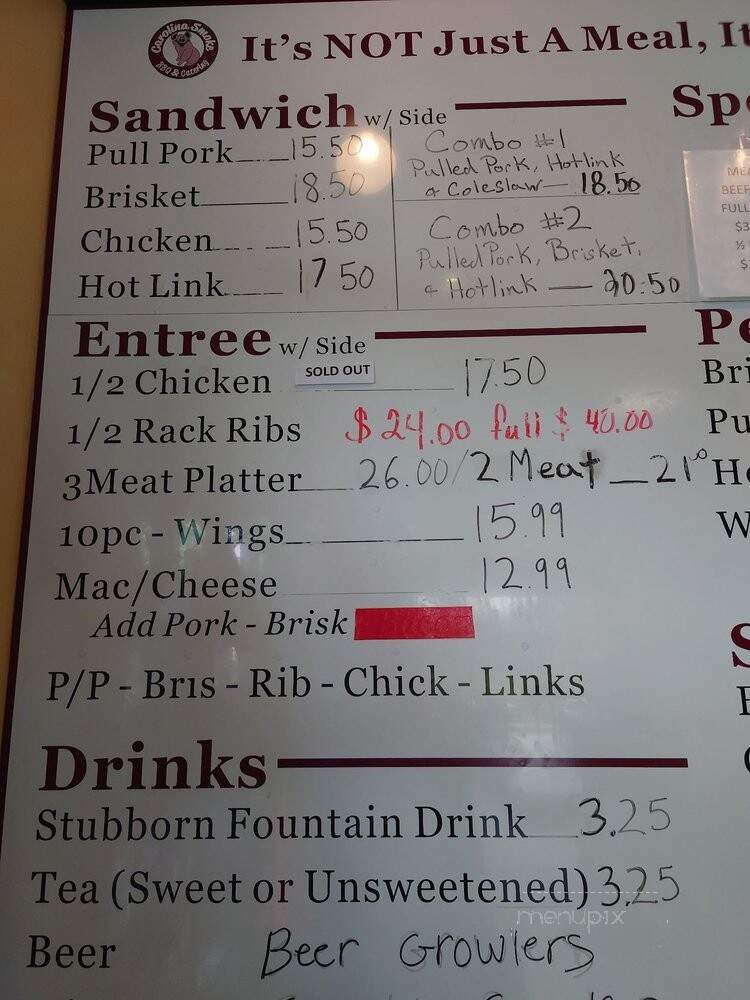 Carolina Smoke
BBQ & Catering
It's NOT Just A Meal, It
Sandwich w/ Side
Pull Pork 15.50
Brisket 18.50
Chicken 15.50
Hot Link 17 50
Combo #1
Pulled Pork, Hotlink
& Coleslaw — 18.50
Combo #2
Pulled Pork, Brisket,
& Hotlink — 20.50
Spe
ME
BEEF
FULL
$3
½
$
Entree w/ Side
1/2 Chicken SOLD OUT 17.50
1/2 Rack Ribs $24.00 full $40.00
3Meat Platter 26.00/2 Meat _ 21°
10pc - Wings 15.99
Mac/Cheese 12.99
Add Pork - Brisk
P/P - Bris - Rib - Chick - Links
Pe
Bri
Pu
Ho
W
Drinks
Stubborn Fountain Drink 3.25
Tea (Sweet or Unsweetened) 3.25
Beer Beer Growlers
S
menupix